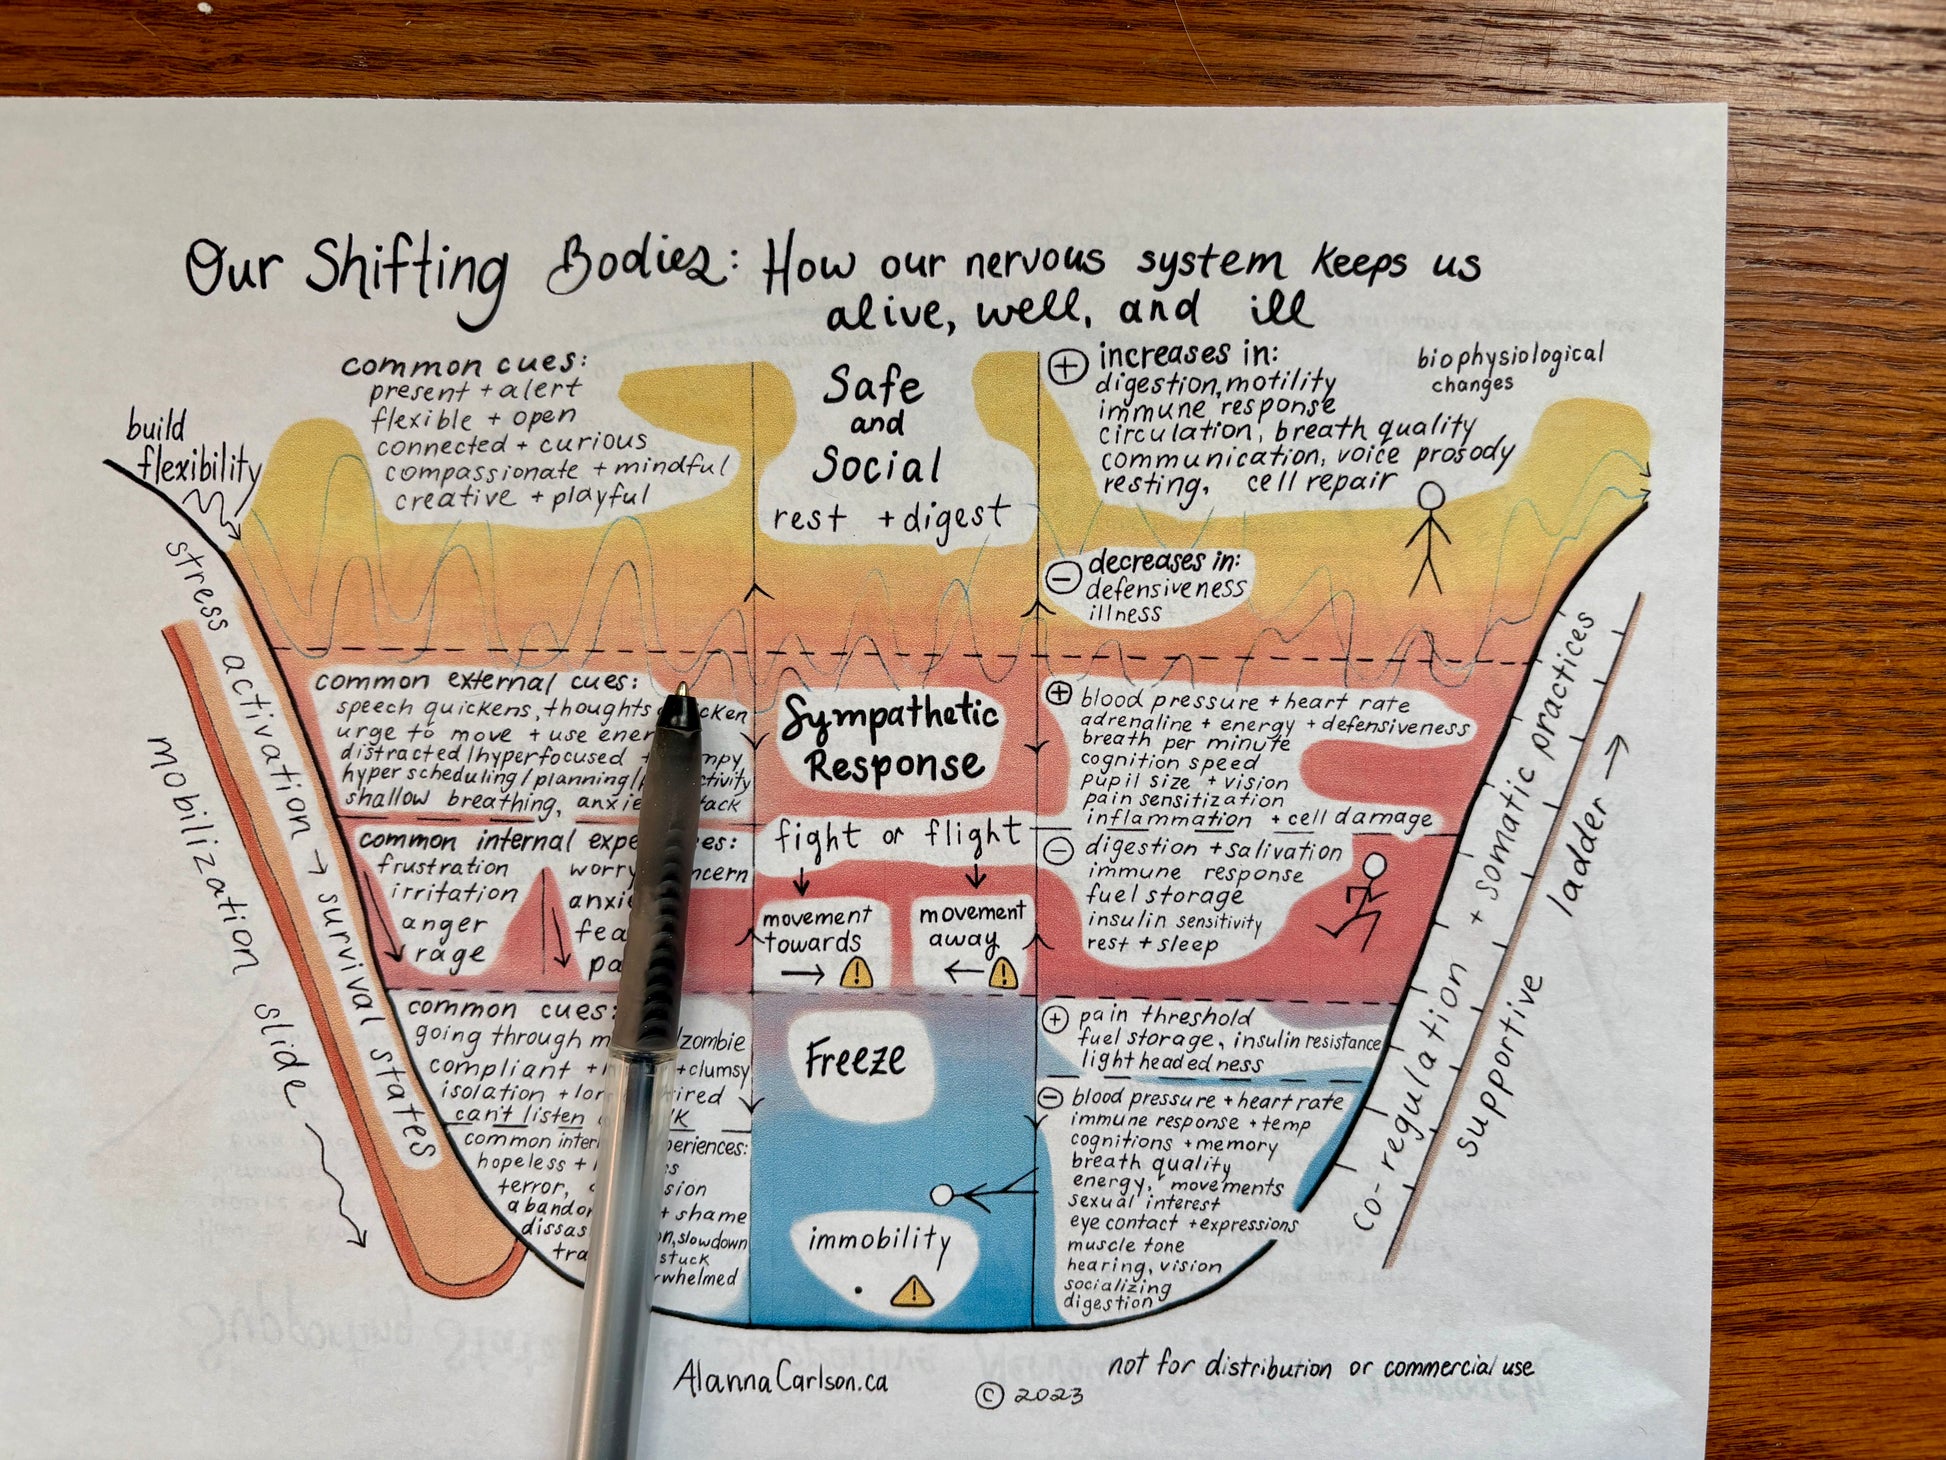 Our Shifting Bodies: How our nervous system keeps us
alive, well, and ill
common cues:
present + alert
flexible + open
connected + curious
compassionate + mindful
creative + playful
build
flexibility
Safe
and
Social
rest + digest
+ increases in:
digestion, motility
immune response
circulation, breath quality
communication, voice prosody
resting, cell repair
biophysiological
changes
- decreases in:
defensiveness
illness
stress activation → survival states
mobilization slide
common external cues:
speech quickens, thoughts
urge to move + use
distracted/hyperfocused +
hyper scheduling/planning/
shallow breathing,
common internal
frustration
irritation
anger
rage
worry
Sympathetic
Response
fight or flight
movement
towards
movement
away
+ blood pressure + heart rate
adrenaline + energy + defensiveness
breath per minute
cognition speed
pupil size + vision
pain sensitization
inflammation + cell damage
- digestion + salivation
immune response
fuel storage
insulin sensitivity
rest + sleep
common cues:
going through zombie
compliant + + clumsy
isolation +
can't listen
common
hopeless +
terror,
+ shame
slowdown
stuck
Freeze
immobility
+ pain threshold
fuel storage, insulin resistance
lightheadedness
- blood pressure + heart rate
immune response + temp
cognitions + memory
breath quality
energy, movements
sexual interest
eye contact + expressions
muscle tone
hearing, vision
socializing
digestion
co-regulation + somatic practices
supportive ladder →
AlannaCarlson.ca
© 2023
not for distribution or commercial use